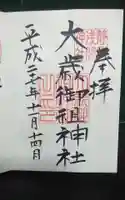 奉拝
大歳御祖神社
平成二十七年十一月十四日